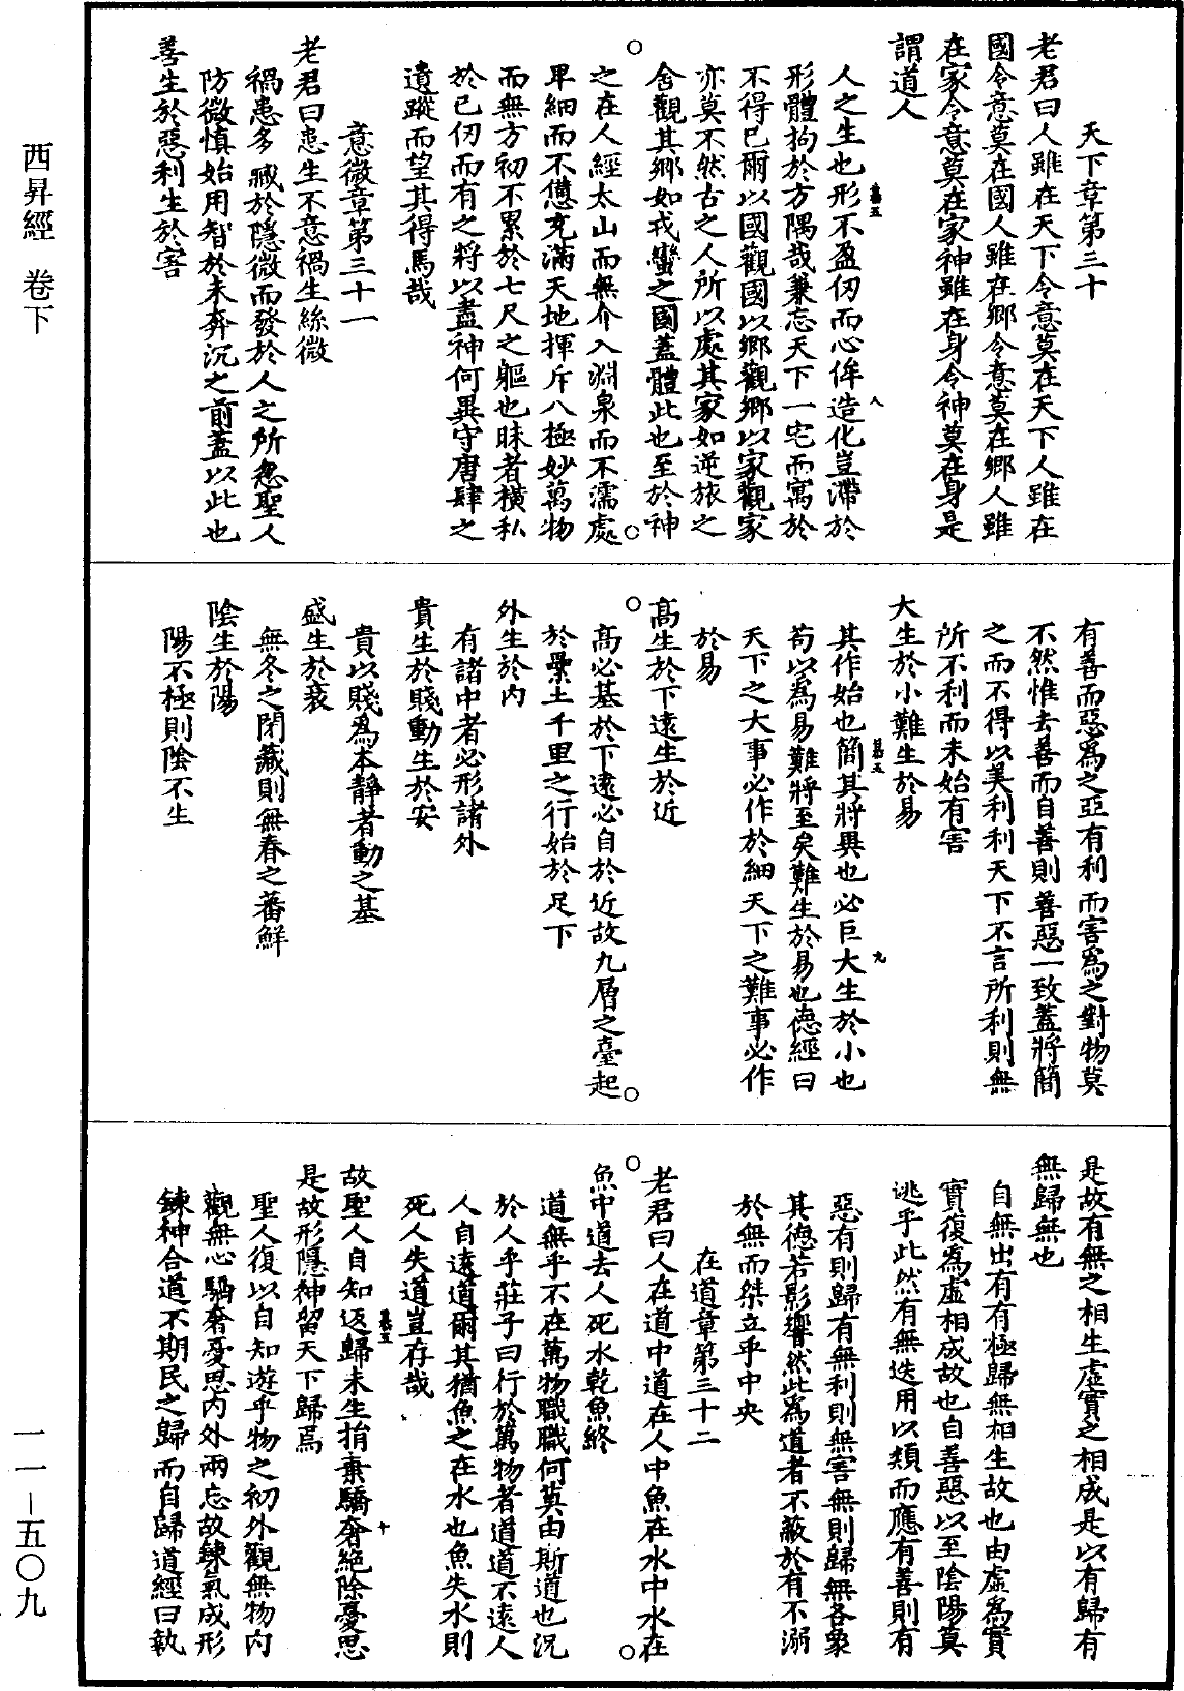 天下章第三十
老君曰人雖在天下令意莫在天下人雖在
國令意莫在國人雖在鄉令意莫在鄉人雖
在家令意莫在家神雖在身令神莫在身是
謂道人
人之生也形不盈仞而心侔造化豈滯於
形體拘於方隅哉兼忘天下一宅而寓於
不得已爾以國觀國以鄉觀鄉以家觀家
亦莫不然古之人所以處其家如逆旅之
舍觀其鄉如戎蠻之國蓋體此也至於神
之在人經太山而無介入淵泉而不濡處
卑細而不憊充滿天地揮斥八極妙萬物
而無方初不累於七尺之軀也昧者橫私
於已仞而有之將以盡神何異守唐肆之
遺蹤而望其得馬哉
意微章第三十一
老君曰患生不意禍生絲微
禍患多藏於隱微而發於人之所忽聖人
防微慎始用智於未奔沉之前蓋以此也
善生於惡利生於害
有善而惡為之亞有利而害為之對物莫
不然惟去善而自善則善惡一致蓋將簡
之而不得以美利利天下不言所利則無
所不利而未始有害
大生於小難生於易
其作始也簡其將畢也必巨大生於小也
苟以為易難將至矣難生於易也德經曰
天下之大事必作於細天下之難事必作
於易
高生於下遠生於近
高必基於下遠必自於近故九層之臺起
於纍土千里之行始於足下
外生於內
有諸中者必形諸外
貴生於賤動生於安
貴以賤為本靜者動之基
盛生於衰
無冬之閉藏則無春之蕃鮮
陰生於陽
陽不極則陰不生
是故有無之相生虛實之相成是以有歸有
無歸無也
自無出有有極歸無相生故也由虛為實
實復為虛相成故也自善惡以至陰陽莫
逃乎此然有無迭用以類而應有善則有
惡有則歸有無利則無害無則歸無各象
其德若影響然此為道者不蔽於有不溺
於無而桀立乎中央
在道章第三十二
老君曰人在道中道在人中魚在水中水在
魚中道去人死水乾魚終
道無乎不在萬物職職何莫由斯道也況
於人乎莊子曰行於萬物者道道不遠人
人自遠道爾其猶魚之在水也魚失水則
死人失道豈存哉
故聖人自知返歸未生捐棄驕奢絕除憂思
是故形隱神留天下歸焉
聖人復以自知遊乎物之初外觀無物內
觀無心驕奢憂思內外兩忘故鍊氣成形
鍊神合道不期民之歸而自歸道經曰執
西昇經 卷下
一一－五〇九